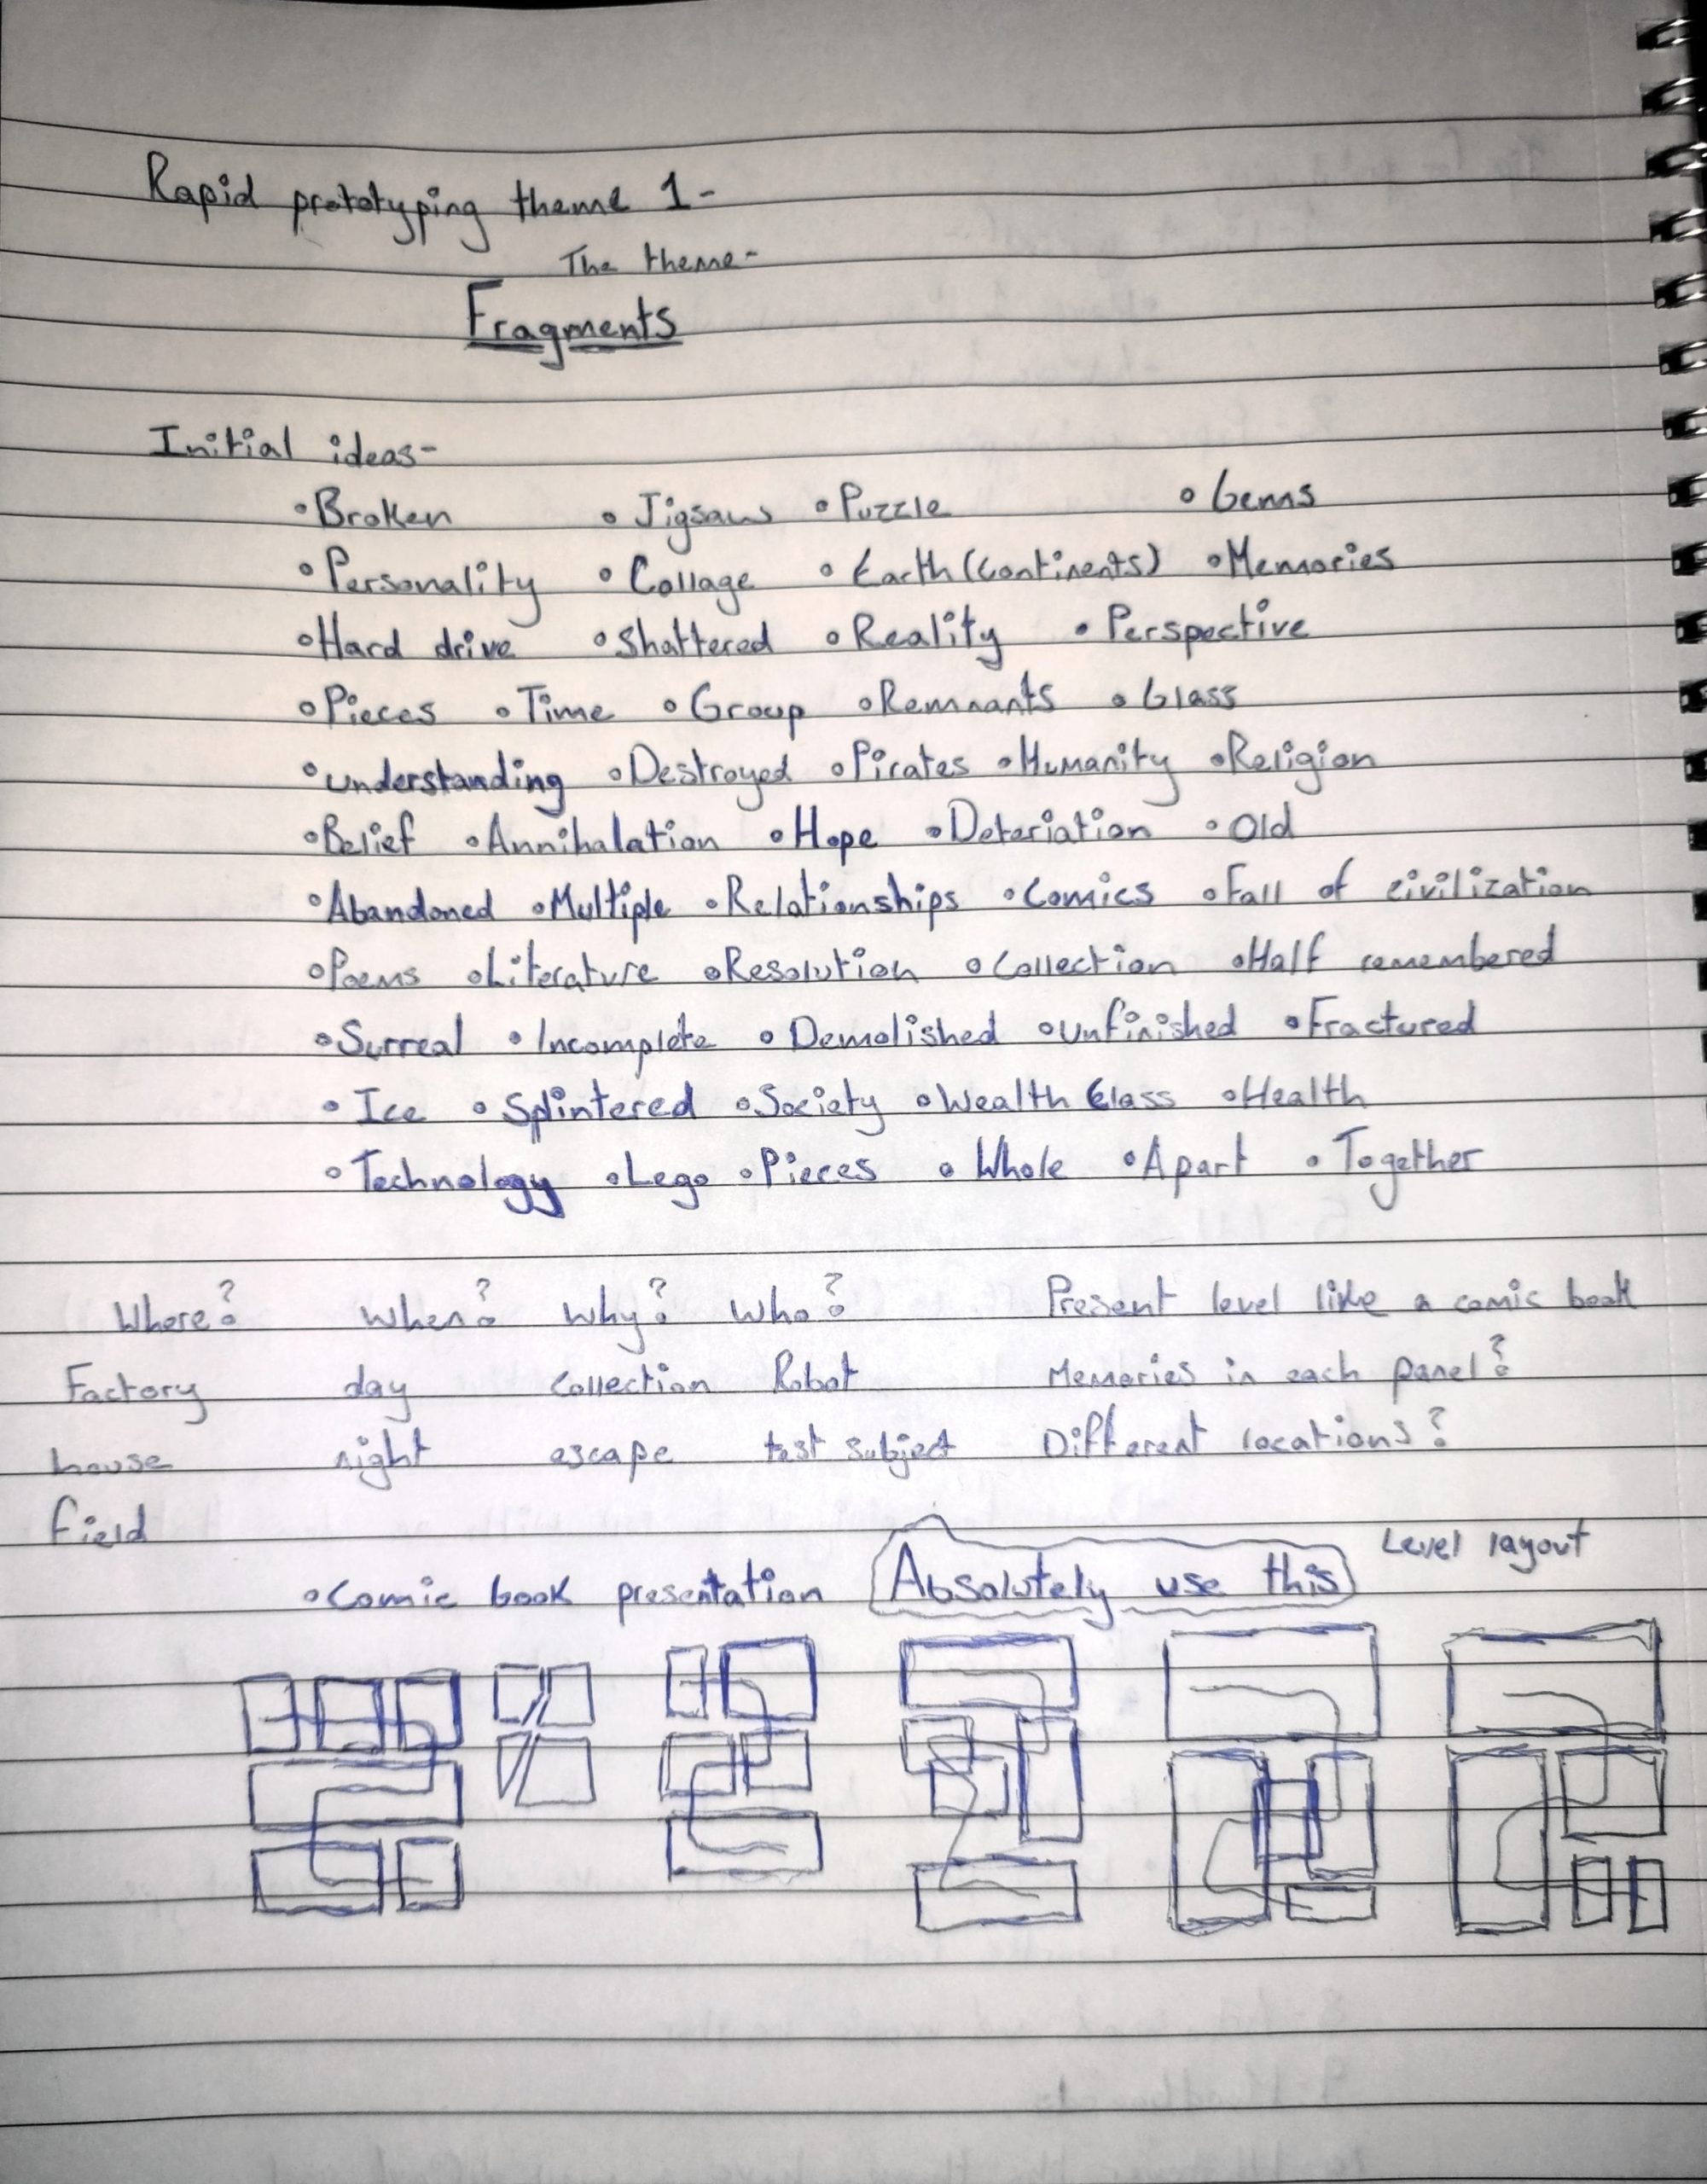 Rapid prototyping theme 1-
The theme-
Fragments
Initial ideas-
•Broken •Jigsaw •Puzzle •Gems
•Personality •Collage •Earth (continents) •Memories
•Hard drive •Shattered •Reality •Perspective
•Pieces •Time •Group •Remnants •Glass
•Understanding •Destroyed •Pirates •Humanity •Religion
•Belief •Annihalation •Hope •Deteriation •Old
•Abandoned •Multiple •Relationships •Comics •Fall of civilization
•Poems •Literature •Resolution •Collection •Half remembered
•Surreal •Incomplete •Demolished •Unfinished •Fractured
•Ice •Splintered •Society •Wealth Class •Health
•Technology •Lego •Pieces •Whole •Apart •Together
Where? When? Why? Who? Present level like a comic book
Factory day collection Robot Memories in each panel?
house night escape test subject Different locations?
field
•Comic book presentation Absolutely use this Level layout